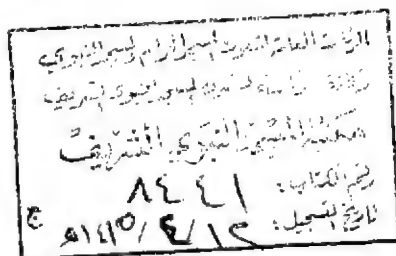 الرئاسة العامة لشؤون المسجد الحرام والمسجد النبوي
وكالة الرئاسة لشؤون المسجد النبوي الشريف
مكتبة المسجد النبوي الشريف
رقم الكتاب: ٨٤٤١
تاريخ التسجيل: ١٢/٤/١٤١٥هـ
ج